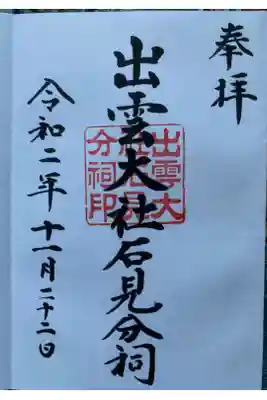 奉拝
出雲大社石見分祠
出雲大
社石見
分祠印
令和二年十一月二十二日